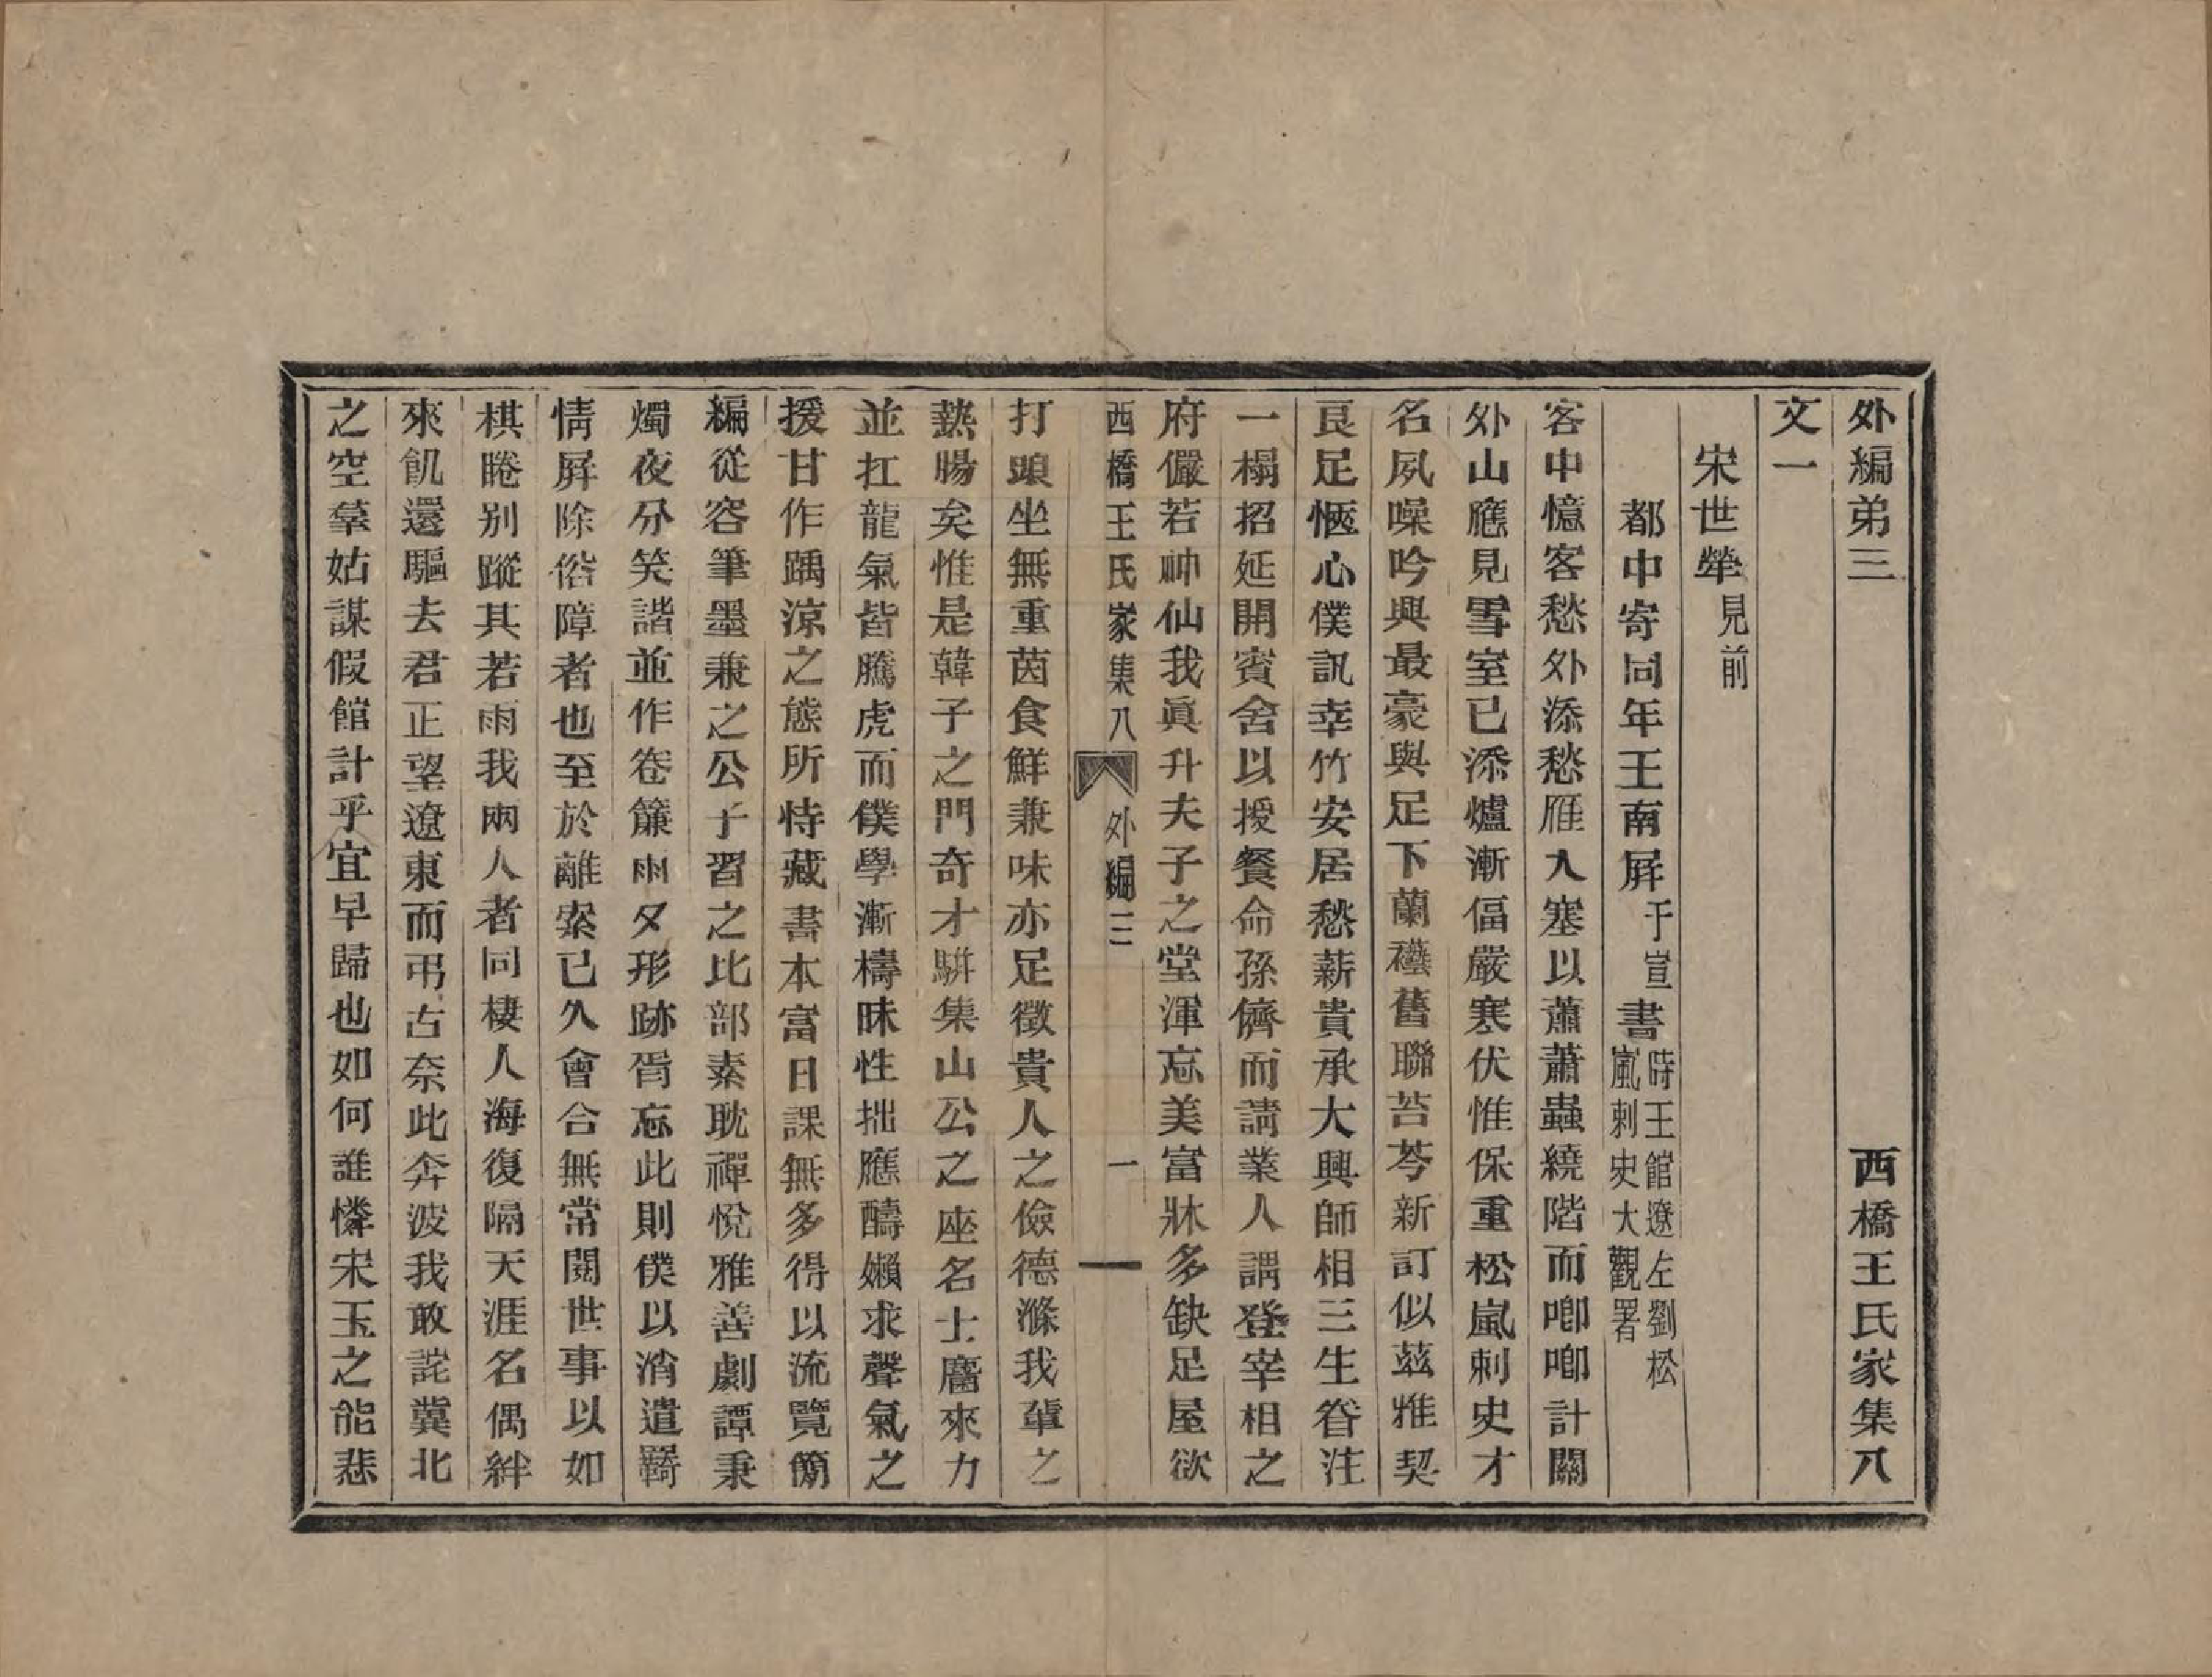 外編弟三　西橋王氏家集八
文一
宋世犖見前
都中寄同年王南屏于宣書時王館遼左劉松嵐刺史大觀署
客中憶客愁外添愁雁入塞以蕭蕭蟲繞階而喞喞計關
外山應見雪室已添爐漸偪嚴寒伏惟保重松嵐刺史才
名夙噪吟興最豪與足下蘭襼舊聯苔芩新訂似茲雅契
良足愜心僕訊幸竹安居愁薪貴承大興師相三生眷注
一榻招延開賓舍以授餐命孫儕而請業人謂登宰相之
府儼若神仙我眞升夫子之堂渾忘美富牀多缺足屋欲
西橋王氏家集八　外編三　一
打頭坐無重茵食鮮兼味亦足徵貴人之儉德滌我輩之
熱腸矣惟是韓子之門奇才駢集山公之座名士麕來力
並扛龍氣皆騰虎而僕學漸檮昧性拙應醻嬾求聲氣之
援甘作踽涼之態所恃藏書本富日課無多得以流覽簡
編從容筆墨兼之公子習之比部素耽禪悅雅善劇譚秉
燭夜分笑諧並作卷簾雨夕形跡胥忘此則僕以消遣羇
情屏除俗障者也至於離索已久會合無常閱世事以如
棋睠别蹤其若雨我兩人者同棲人海復隔天涯名偶絆
來飢還驅去君正望遼東而弔古奈此奔波我敢詫冀北
之空羣姑謀假館計乎宜早歸也如何誰憐宋玉之能悲